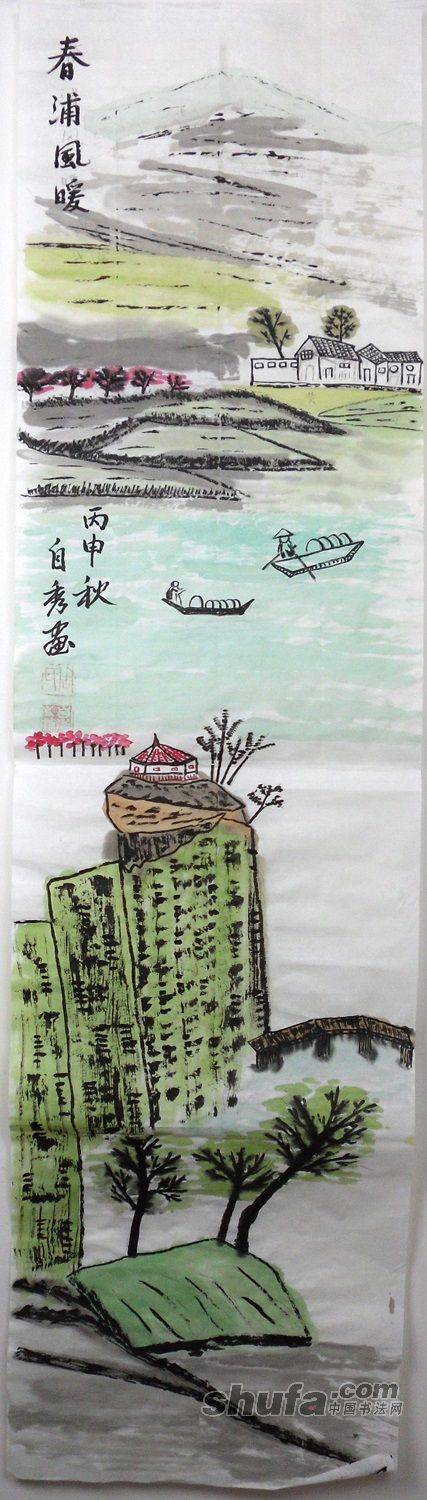 春浦風暖
丙申秋
自秀畫
shufa.com
中国书法网